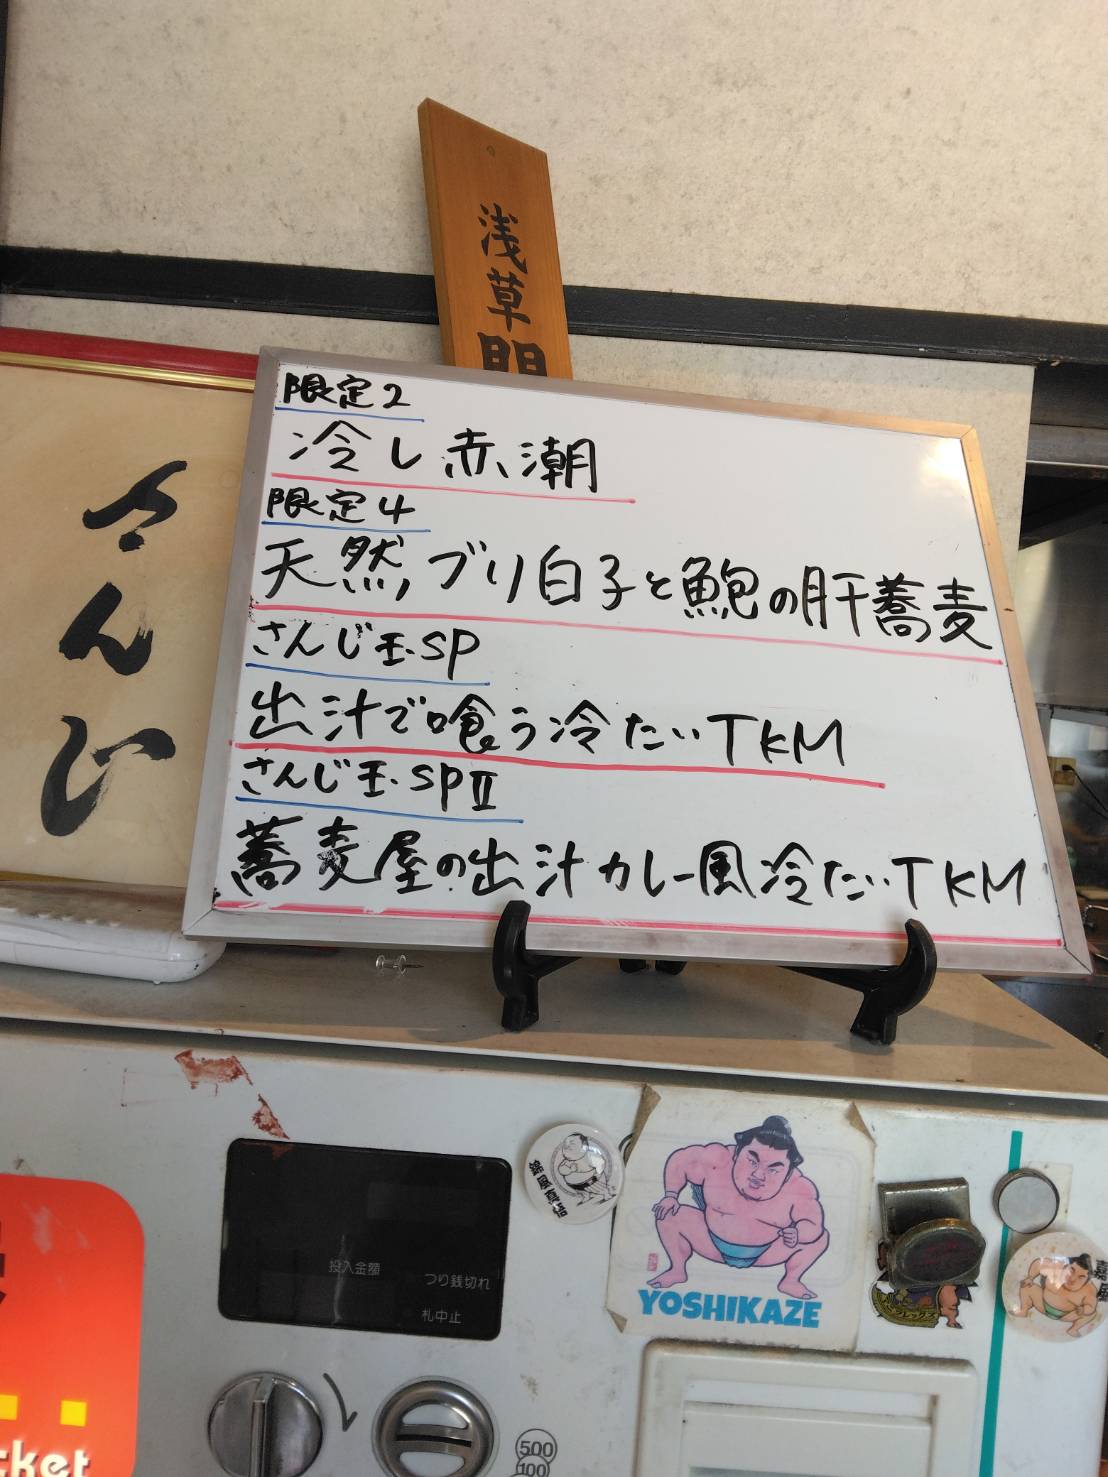 浅草
限定2
冷し赤潮
限定4
天然ブリ白子と鮑の肝蕎麦
さんじ玉SP
出汁で喰う冷たいTKM
さんじ玉SPⅡ
蕎麦屋の出汁カレー風冷たいTKM
さんじ
投入金額
つり銭切れ
札中止
YOSHIKAZE
500
100
cket